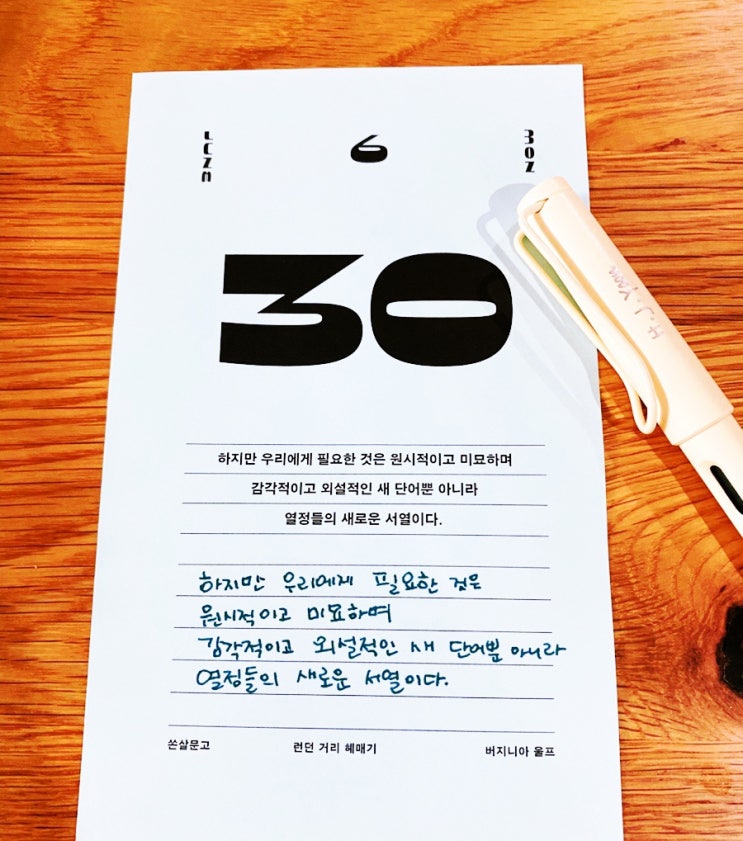 JUNE
6
MON
30
하지만 우리에게 필요한 것은 원시적이고 미묘하며
감각적이고 외설적인 새 단어뿐 아니라
열정들의 새로운 서열이다.
하지만 우리에게 필요한 것은
원시적이고 미묘하며
감각적이고 외설적인 새 단어뿐 아니라
열정들의 새로운 서열이다.
쏜살문고
런던 거리 헤매기
버지니아 울프
H.J. Yoon